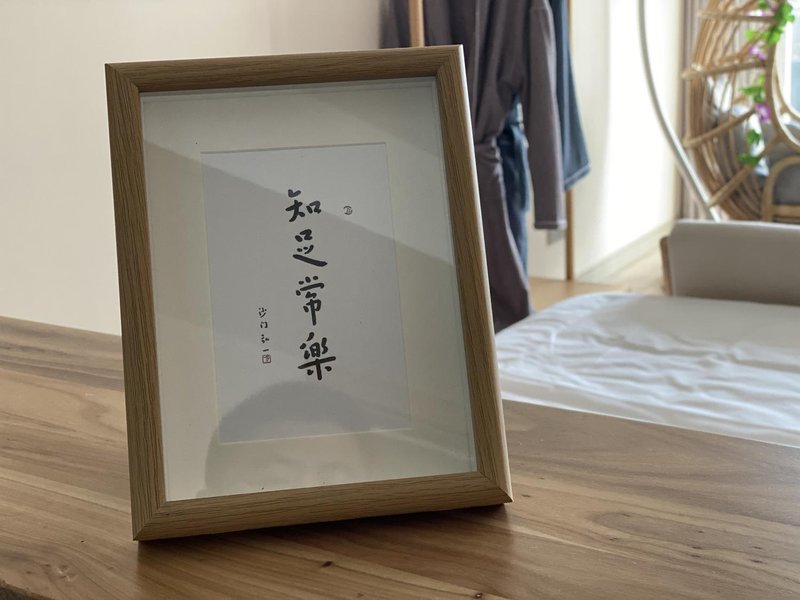 知足常樂
沙门弘一